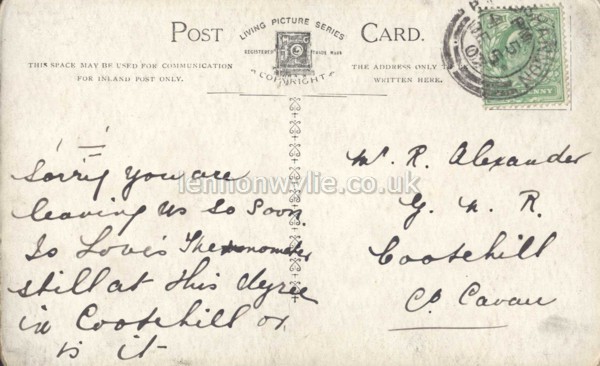 POST CARD.
LIVING PICTURE SERIES
REGISTERED TRADE MARK
COPYRIGHT
THIS SPACE MAY BE USED FOR COMMUNICATION
FOR INLAND POST ONLY.
THE ADDRESS ONLY TO
WRITTEN HERE.
PENNY
Sorry you are
leaving us so soon.
Is Love's Thermometer
still at this degree
in Cootehill or
is it
Mr. R. Alexander
G. N. R.
Cootehill
Co. Cavan
lennonwylie.co.uk